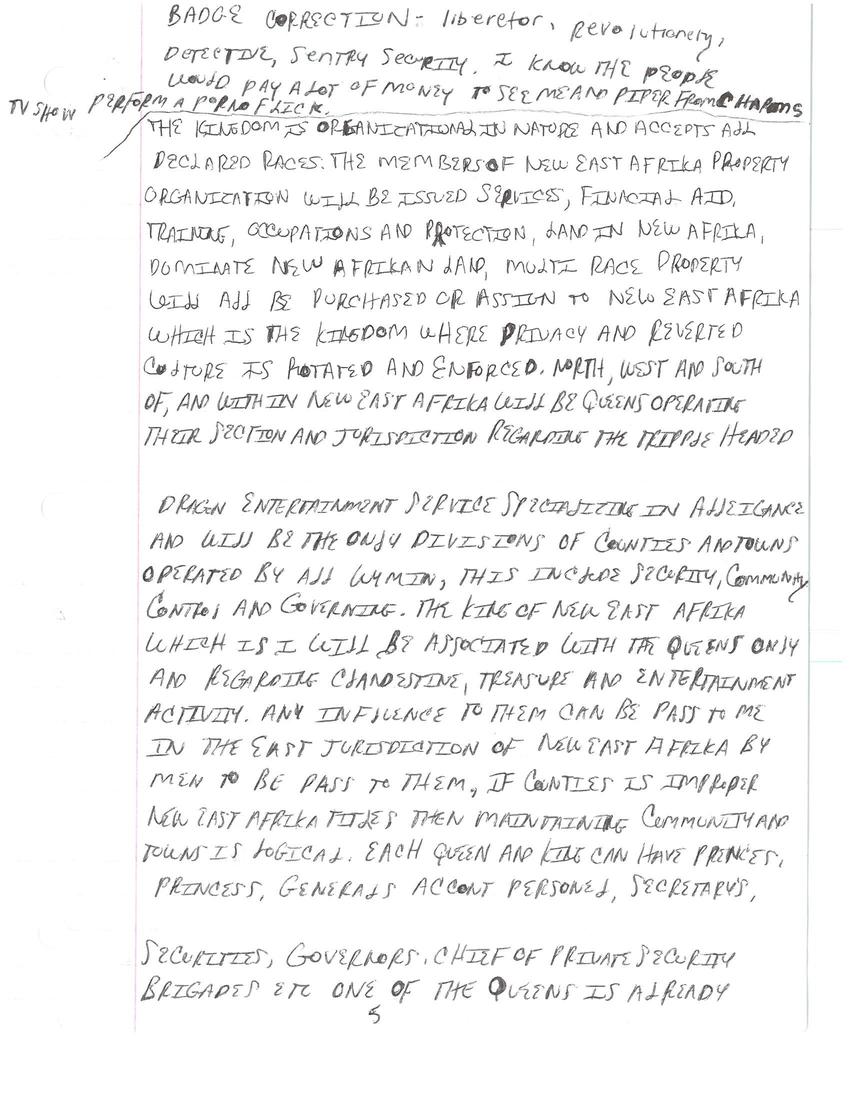 BADGE CORRECTION- liberetor, revolutionery,
DETECTIVE, SENTRY SECURITY. I KNOW THE PEOPLE
WOULD PAY A LOT OF MONEY TO SEE ME AND PIPER FROM CHARMS
TV SHOW PERFORM A PORNO FLICK.
THE KINGDOM IS ORGANIZATIONAL IN NATURE AND ACCEPTS ALL
DECLARED RACES. THE MEMBERS OF NEW EAST AFRIKA PROPERTY
ORGANIZATION WILL BE ISSUED SERVICES, FINACIAL AID,
TRAINING, OCCUPATIONS AND PROTECTION, LAND IN NEW AFRIKA,
DOMINATE NEW AFRIKAN LAND, MULTI RACE PROPERTY
WILL ALL BE PURCHASED OR ASSIGN TO NEW EAST AFRIKA
WHICH IS THE KINGDOM WHERE PRIVACY AND REVERTED
CULTURE IS ROTATED AND ENFORCED. NORTH, WEST AND SOUTH
OF, AND WITHIN NEW EAST AFRIKA WILL BE QUEENS OPERATING
THEIR SECTION AND JURISDICTION REGARDING THE TRIPPLE HEADED
DRAGEN ENTERTAINMENT SERVICE SPECIALIZING IN ALLEIGANCE
AND WILL BE THE ONLY DIVISIONS OF COUNTIES AND TOWNS
OPERATED BY ALL WYMIN, THIS INCLUDE SECURITY, COMMUNITY
CONTROL AND GOVERNING. THE KING OF NEW EAST AFRIKA
WHICH IS I WILL BE ASSOCIATED WITH THE QUEENS ONLY
AND REGARDING CLANDESTINE, TREASURE AND ENTERTAINMENT
ACTIVITY. ANY INFLUENCE TO THEM CAN BE PASS TO ME
IN THE EAST JURISDICTION OF NEW EAST AFRIKA BY
MEN TO BE PASS TO THEM, IF COUNTIES IS IMPROPER
NEW EAST AFRIKA TITLES THEN MAINTAINING COMMUNITY AND
TOWNS IS LOGICAL. EACH QUEEN AND KING CAN HAVE PRINCES,
PRINCESS, GENERALS ACCONT PERSONEL, SECRETARY'S,
SECURITIES, GOVERNORS, CHIEF OF PRIVATE SECURITY
BRIGADES ETC ONE OF THE QUEENS IS ALREADY
5